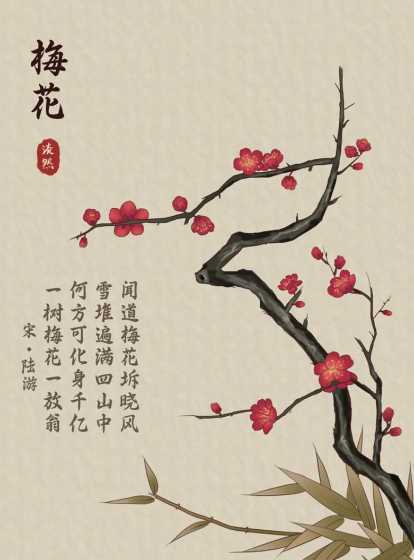 梅花
凌然
闻道梅花坼晓风
雪堆遍满四山中
何方可化身千亿
一树梅花一放翁
宋·陆游